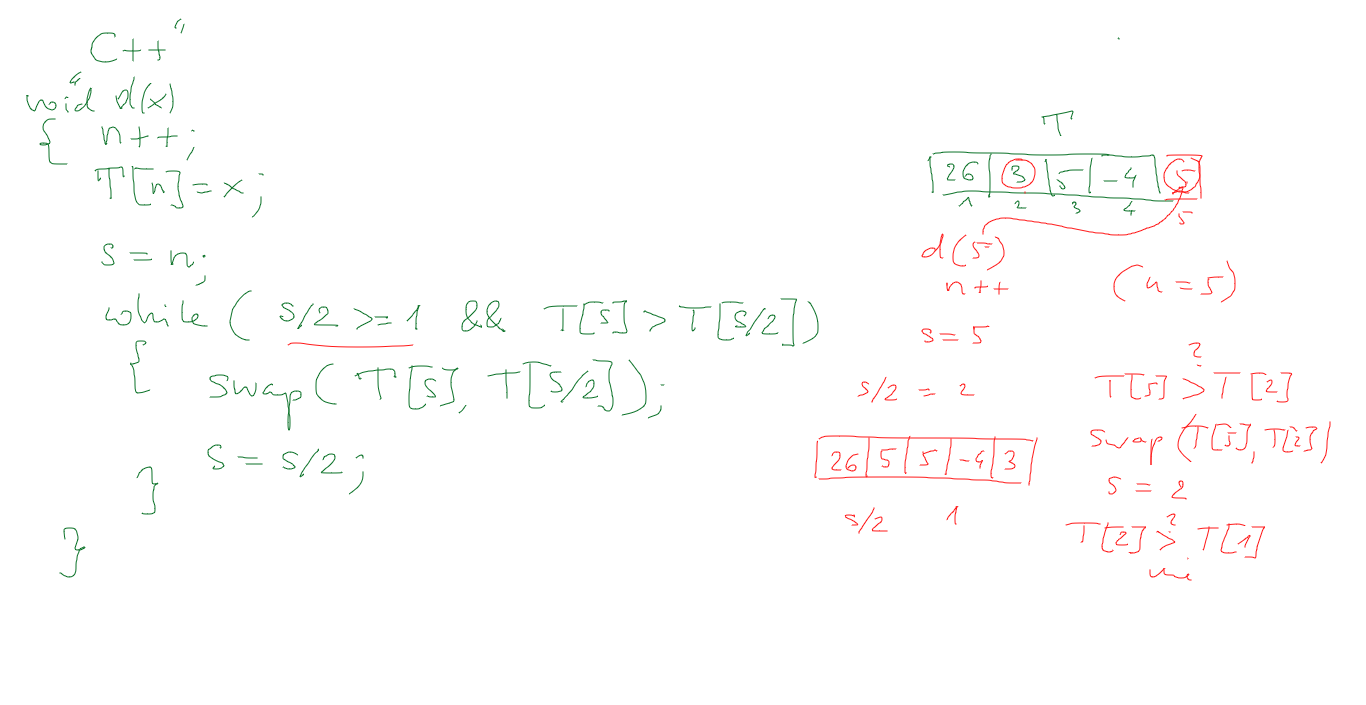 C++"
"void d(x)
{ n++;
T[n] = x;
s = n;
while ( s/2 >= 1 && T[s] > T[s/2])
{
swap( T[s], T[s/2]);
s = s/2;
}
}
T
26 3 5 -4 5
1 2 3 4 5
d(5)
n++ (n = 5)
s = 5
?
s/2 = 2 T[5] > T[2]
swap (T[5], T[2])
26 5 5 -4 3
s = 2
s/2 1
?
T[2] > T[1]
nie